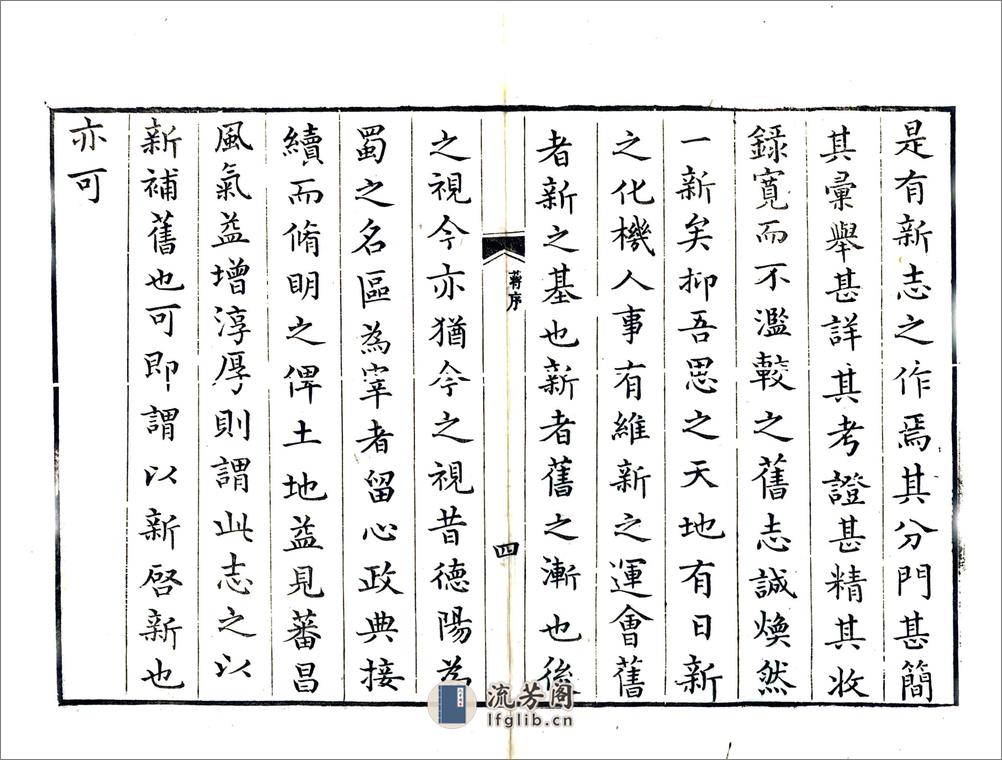 是有新志之作焉其分門甚簡
其彙舉甚詳其考證甚精其收
錄寬而不濫較之舊志誠煥然
一新矣抑吾思之天地有日新
之化機人事有維新之運會舊
者新之基也新者舊之漸也後
蔣序
四
之視今亦猶今之視昔德陽為
蜀之名區為宰者留心政典接
續而脩明之俾土地益見蕃昌
風氣益增淳厚則謂此志之以
新補舊也可即謂以新啓新也
亦可
流芳阁
lfglib.cn